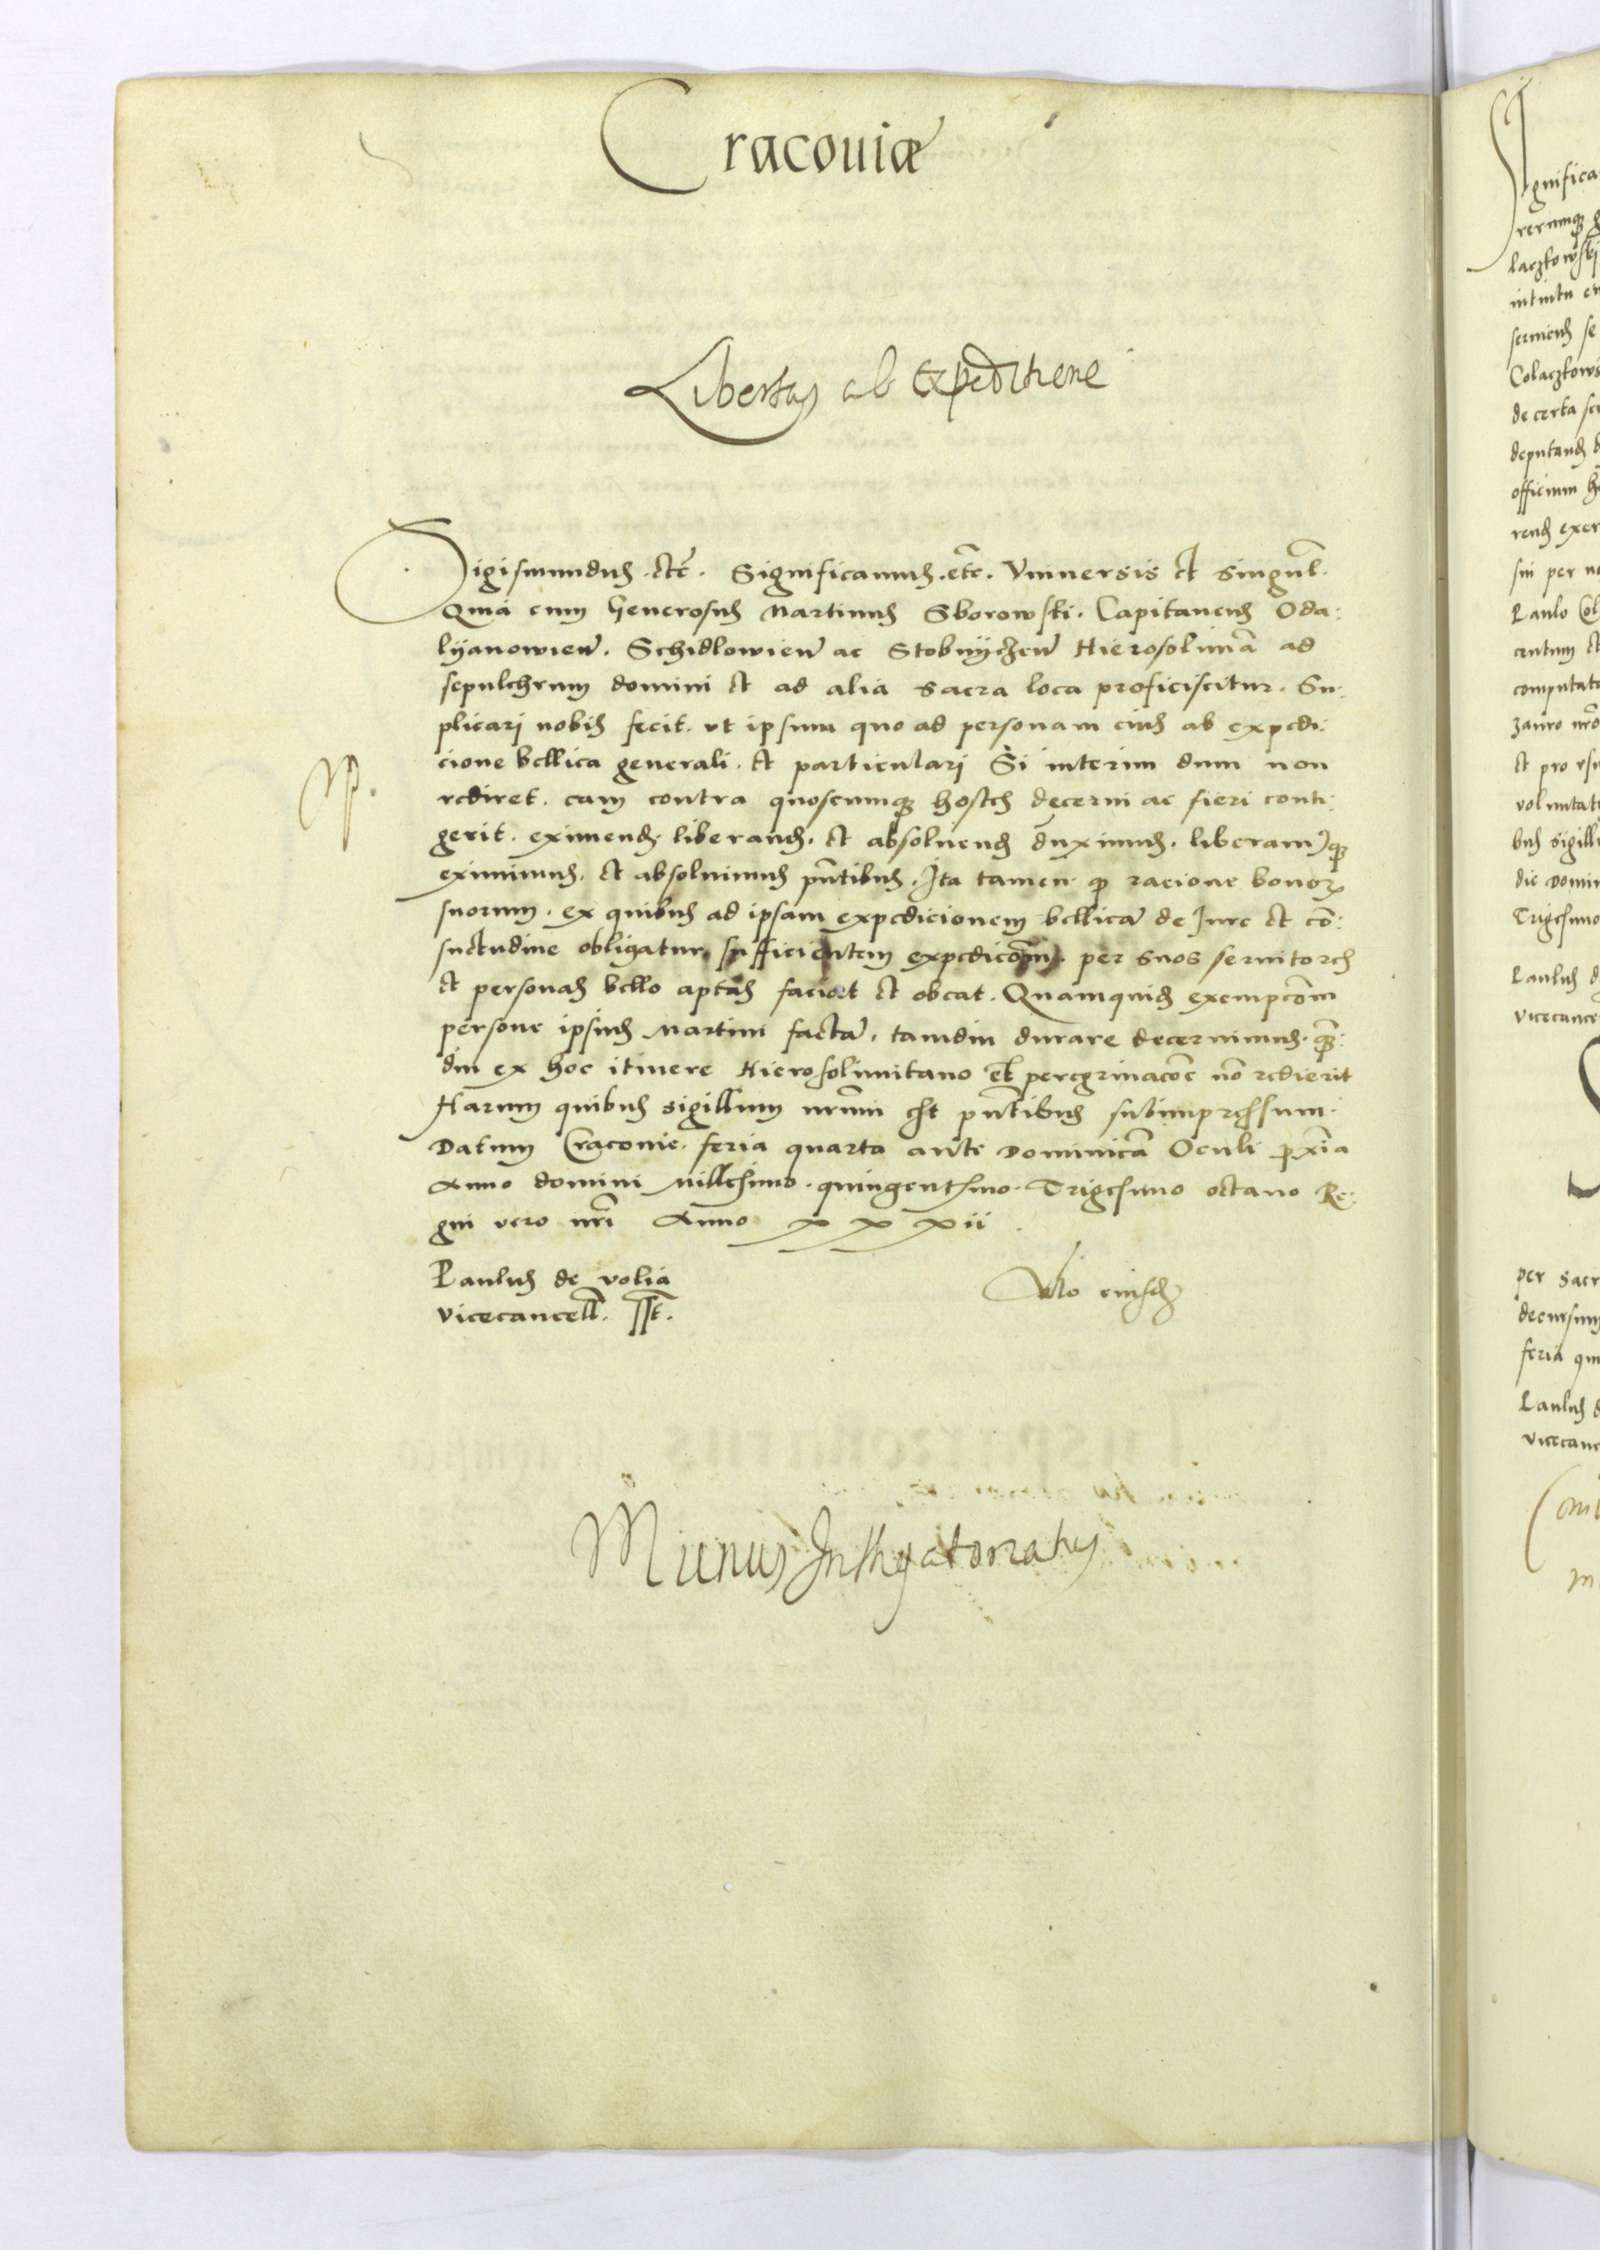 Cracouiæ
Libertas ab Expeditione
Sigismundus. etc̃. Significamus. etc. Vniuersis et singul.
Quia cum Generosus Martinus Sborowski. Capitaneus Oda:
lyanowien̄. Schidlowien̄ ac Stobnyczen̄ Hierosolimā ad
sepulchrum domini et ad alia sacra loca proficiscitur. Su:
plicari nobis fecit. vt ipsum quo ad personam eius ab expedi:
cione bellica generali. et particulari Si interim dum non
rediret. eam contra quoscumq hostes decerni ac fieri conti:
gerit. eximend. liberand. et absoluend duximus. liberamusq
eximimus. et absoluimus pn̄tibus. Ita tamen. q racione bonor
suorum. ex quibus ad ipsam expedicionem bellicā de Jure et cō:
suetudine obligatur sufficientem expedicōm. per suos seruitores
et personas bello aptas faciet et obeat. Quamquid exempcōm
persone ipsius Martini factā. tamdiu durare decernimus. quā:
diu ex hoc itinere Hierosolimitano et peregrinacōe nō redierit
Harum quibus sigillum nrūm est pn̄tibus subimpressum.
Datum Cracouie. feria quarta ante Dominicā Oculi proxīa
Anno domini Millesimo. quingentesimo. Trigesimo octauo Re:
gni vero nrī Anno xxxii.
Paulus de volia
Vicecancell. sst.
Rlo eiusd
Munus
Significa
rerumq
laczkowski
intuitu
seruiend se
Colaczkows
de certa
deputand
officium
rend exer
sui per
Paulo Col
centum et
computat
zauro nrō
et pro
voluntat
bus sigill
die Domi
Trigesimo
Paulus d
Vicecance
per sacr
decursum
feria qui
Paulus d
Vicecanc